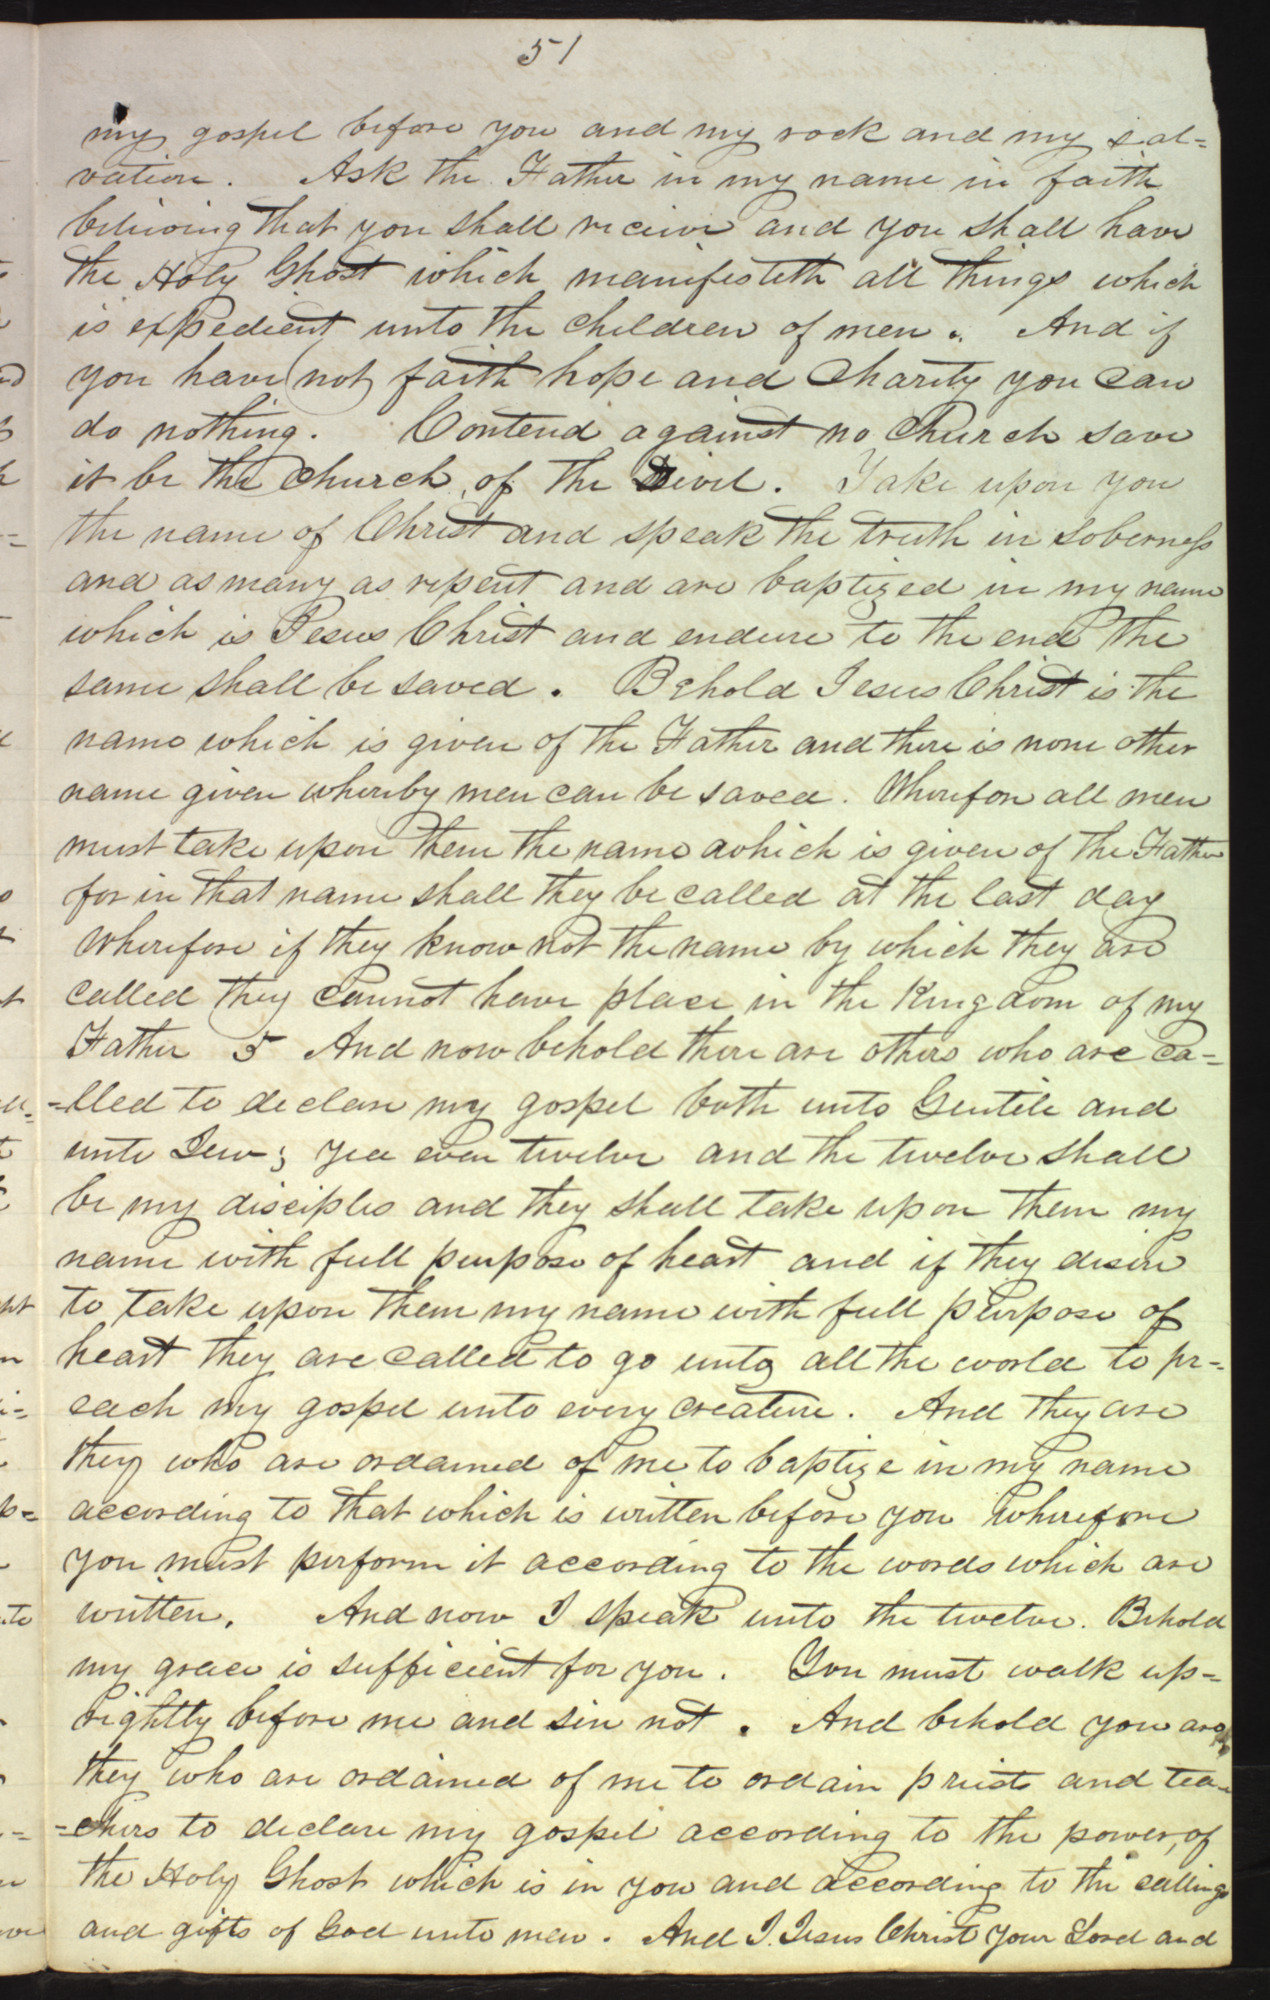 51
my gospel before you and my rock and my sal=
vation. Ask the Father in my name in faith
believing that you shall receive and you shall have
the Holy Ghost which manifesteth all things which
is expedient unto the children of men. And if
you have not faith hope and charity you can
do nothing. Contend against no Church save
it be the church of the Devil. Take upon you
the name of Christ and speak the truth in soberness
and as many as repent and are baptized in my name
which is Jesus Christ and endure to the end the
same shall be saved. Behold Jesus Christ is the
name which is given of the Father and there is none other
name given whereby men can be saved. Wherefore all men
must take upon them the name which is given of the Father
for in that name shall they be called at the last day
Wherefore if they know not the name by which they are
called they cannot have place in the Kingdom of my
Father 5 And now behold there are others who are ca=
=lled to declare my gospel both unto Gentile and
unto Jew; yea even twelve and the twelve shall
be my disciples and they shall take upon them my
name with full purpose of heart and if they desire
to take upon them my name with full purpose of
heart they are called to go unto all the world to pr=
each my gospel unto every creature. And they are
they who are ordained of me to baptize in my name
according to that which is written before you wherefore
you must perform it according to the words which are
written. And now I speak unto the twelve. Behold
my grace is sufficient for you. You must walk up=
rightly before me and sin not. And behold you are
they who are ordained of me to ordain priests and tea=
=chers to declare my gospel according to the power of
the Holy Ghost which is in you and according to the callings
and gifts of God unto men. And I Jesus Christ your Lord and